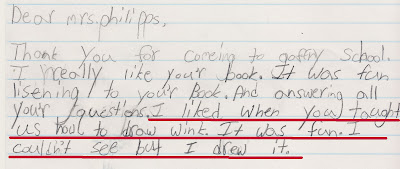 Dear mrs.philipps,
Thank you for comeing to gaffry School.
I really like your book. It was fun
listening to you'r Book. And answering all
you'r questions. I liked when you taught
us how to draw wink. It was fun. I
couldn't see but I drew it.